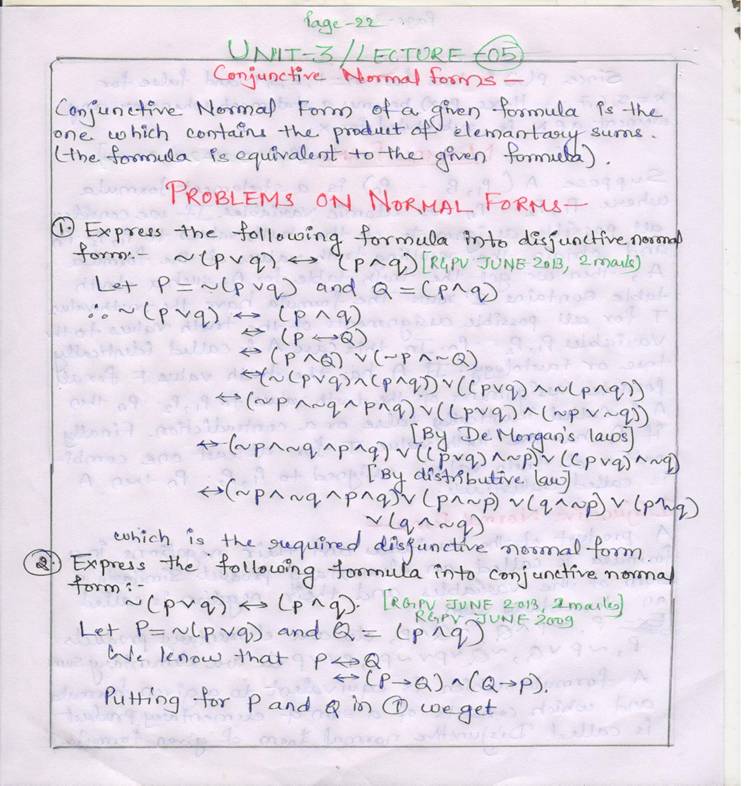 Page-22
UNIT-3/LECTURE-05
Conjunctive Normal forms -
Conjunctive Normal Form of a given formula is the
one which contains the product of elemantary sums.
(the formula is equivalent to the given formula).
PROBLEMS ON NORMAL FORMS-
① Express the following formula into disjunctive normal
form:- ~(p∨q) ↔ (p∧q) [RGPV JUNE 2013, 2 marks]
Let P = ~(p∨q) and Q = (p∧q)
∴ ~(p∨q) ↔ (p∧q)
↔ (P↔Q)
↔ (P∧Q) ∨ (~P∧~Q)
↔ (~(p∨q)∧(p∧q)) ∨ ((p∨q)∧~(p∧q))
↔ (~p∧~q∧p∧q) ∨ ((p∨q)∧(~p∨~q))
[By De Morgan's laws]
↔ (~p∧~q∧p∧q) ∨ ((p∨q)∧~p) ∨ ((p∨q)∧~q)
[By distributive law]
↔ (~p∧~q∧p∧q) ∨ (p∧~p) ∨ (q∧~p) ∨ (p∧~q)
∨ (q∧~q)
which is the required disjunctive normal form.
② Express the following formula into conjunctive normal
form:-
~(p∨q) ↔ (p∧q). [RGPV JUNE 2013, 2 marks]
RGPV JUNE 2009
Let P = ~(p∨q) and Q = (p∧q)
We know that P↔Q
↔ (P→Q) ∧ (Q→P).
Putting for P and Q in ① we get